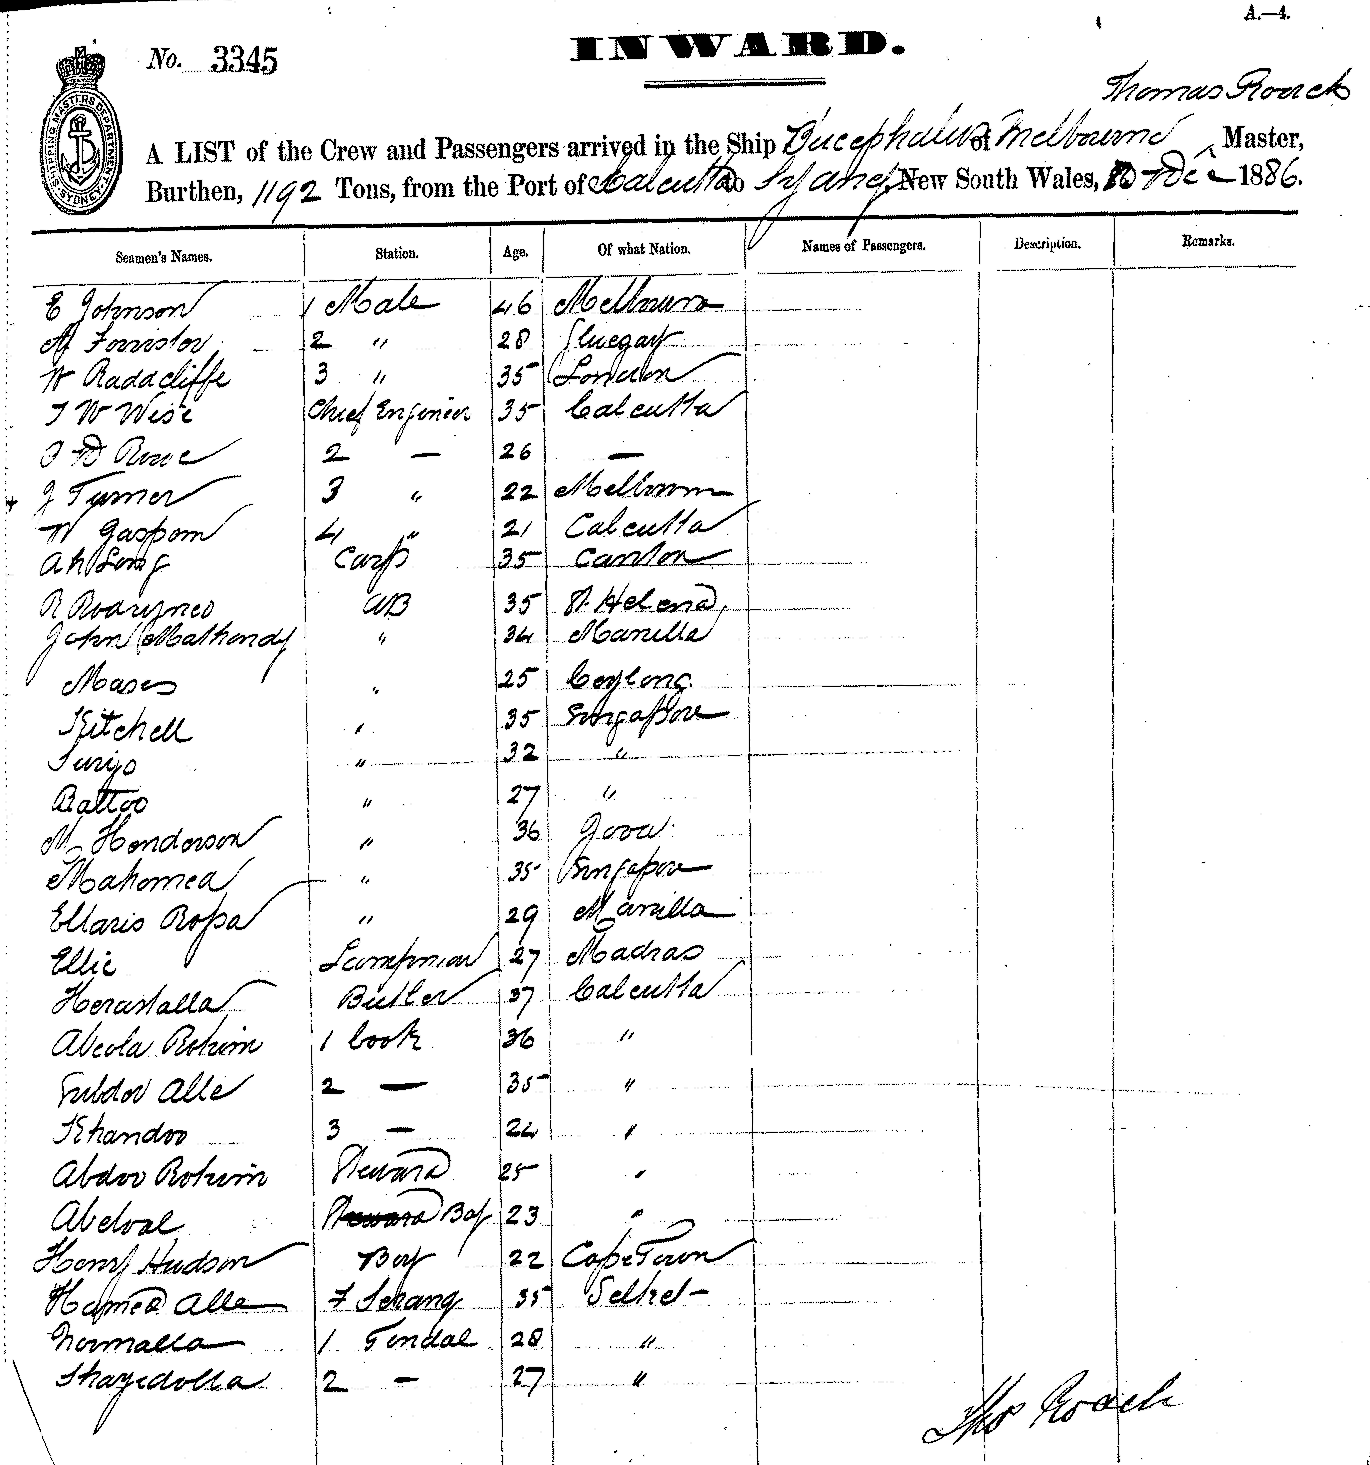 A.—4.
No. 3345
INWARD.
SHIPPING MASTERS DEPARTMENT SYDNEY
Thomas Roach
A LIST of the Crew and Passengers arrived in the Ship Bucephalus of Melbourne, Master,
Burthen, 1192 Tons, from the Port of Calcutta to Sydney, New South Wales, Dec 1886.
Seamen's Names. Station. Age. Of what Nation. Names of Passengers. Description. Remarks.
E Johnson 1 Mate 46 Melbourne
Forrister 2 " 28
W Raddcliffe 3 " 35 London
J W Wise Chief Engineer 35 Calcutta
2 — 26 —
J Turner 3 " 22 Melbourn
W Gasporn 4 " 21 Calcutta
Ah Long Carp 35 Canton
R AB 35 St. Helena
John Mathendy " 34 Manilla
Moses " 25 Ceylong
Kitchell " 35 Singapore
" 32 "
Battoo " 27 "
M Henderson " 36
Mahomed " 35 Singapore
Ellaris Ropa " 29 Manilla
Ellie Lampman 27 Madras
Herastalla Butler 37 Calcutta
Abdola Rohim 1 Cook 36 "
Subdor Alle 2 — 35 "
Khandoo 3 — 24 "
Abdoo Rohim Steward 25 "
Abdool Steward Boy 23 "
Henry Hudson Boy 22 Cape Town
Hamed Alle F Serang 35 Selhet
Noomalla 1 Tendal 28 "
Shayedolla 2 — 27 "
Thos Roach